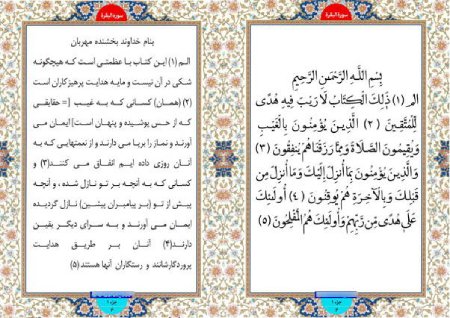 سورة البقرة
بِسْمِ اللَّهِ الرَّحْمَنِ الرَّحِيمِ
الم (۱) ذَلِكَ الْكِتَابُ لَا رَيْبَ فِيهِ هُدًى
لِلْمُتَّقِينَ (۲) الَّذِينَ يُؤْمِنُونَ بِالْغَيْبِ
وَيُقِيمُونَ الصَّلَاةَ وَمِمَّا رَزَقْنَاهُمْ يُنْفِقُونَ (۳)
وَالَّذِينَ يُؤْمِنُونَ بِمَا أُنْزِلَ إِلَيْكَ وَمَا أُنْزِلَ مِنْ
قَبْلِكَ وَبِالْآخِرَةِ هُمْ يُوقِنُونَ (٤) أُولَئِكَ
عَلَى هُدًى مِنْ رَبِّهِمْ وَأُولَئِكَ هُمُ الْمُفْلِحُونَ (۵)
جزء ۱
۲
سوره البقرة
بنام خداوند بخشنده مهربان
الم (۱) این کتاب با عظمتی است که هیچگونه
شکی در آن نیست و مایه هدایت پرهیزکاران است
(۲) (همان) کسانی که به غیب [= حقایقی
که از حس پوشیده و پنهان است] ایمان می
آورند و نماز را برپا می دارند و از نعمتهایی که به
آنان روزی داده ایم انفاق می کنند(۳) و
کسانی که به آنچه بر تو نازل شده ، و آنچه
پیش از تو (بر پیامبران پیشین) نازل گردیده
ایمان می آورند و به سرای دیگر یقین
دارند(۴) آنان بر طریق هدایت
پروردگارشانند و رستگاران آنها هستند (۵)
جزء ۱